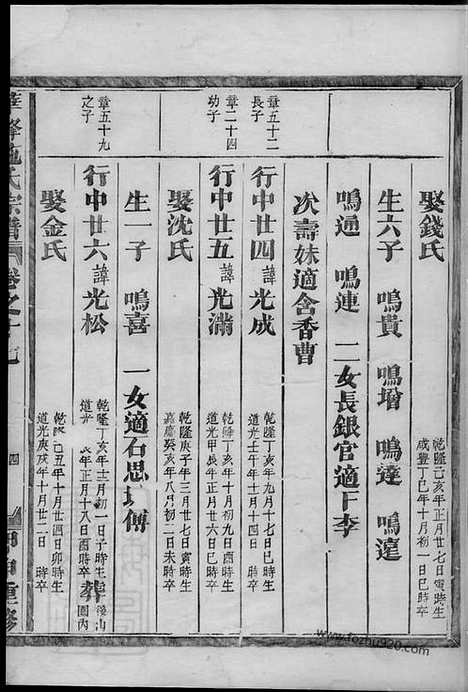 娶錢氏 乾隆己亥年正月廿七日寅時生 咸豐丁巳年十月初一日巳時卒
生六子 鳴貴 鳴增 鳴達 鳴遠
鳴通 鳴連 二女長銀官適下李
次壽妹適舍香曹
章五十二長子
行中廿四諱光成 乾隆丁亥年九月十七日巳時生 道光壬午年十月十四日 時卒
章二十四功子
行中廿五諱光滿 乾隆丁亥年十月初九日酉時生 道光甲辰年正月廿六日辰時卒
娶沈氏 乾隆庚子年三月廿七日寅時生 嘉慶癸亥年八月初二日未時卒
生一子 鳴喜 一女適石思 傅
章五十九之子
行中廿六諱光松 乾隆丁亥年十二月初一日子時生 道光 辰年正月十八日酉時卒 葬後山園內
娶金氏 乾隆己丑年十月廿四日卯時生 道光庚戌年十月廿二日 時卒
華峯施氏宗譜 卷之十七 四 甲申重修
www.fozhu920.com